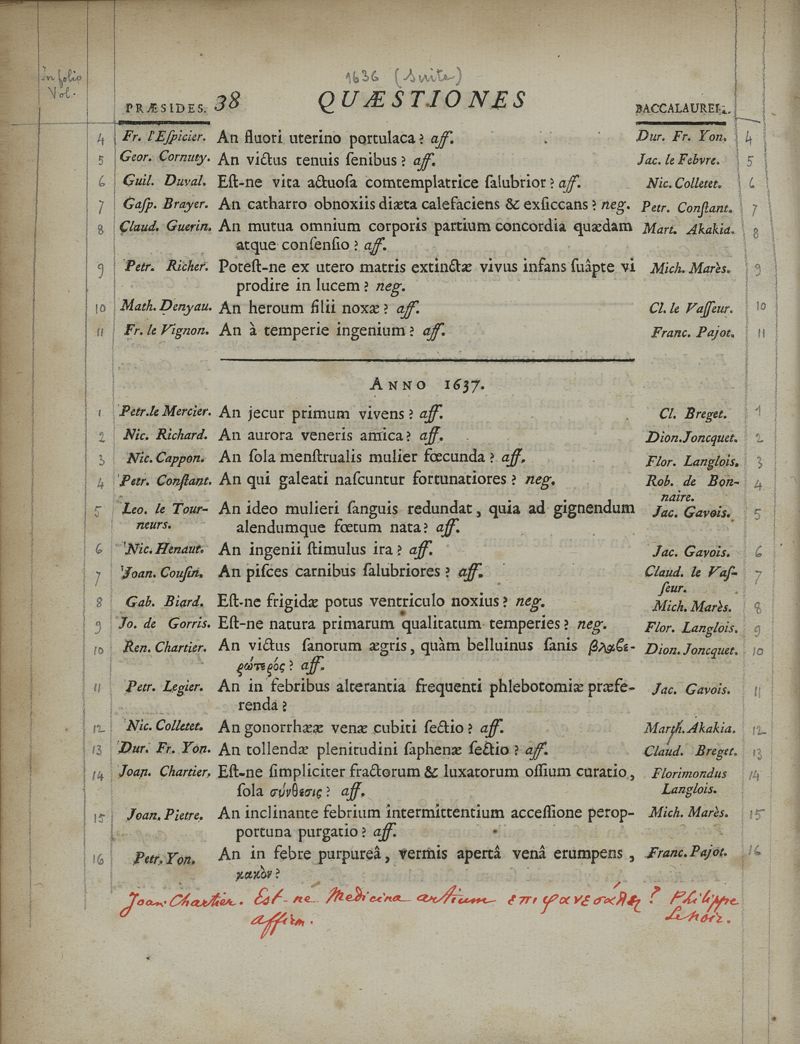 1636 (Suite)
In folio
Vol.
PRÆSIDES. 38 QUÆSTIONES BACCALAUREI.
4 Fr. l'Eſpicier. An fluori uterino portulaca ? aff. Dur. Fr. Yon. 4
5 Geor. Cornuty. An victus tenuis ſenibus ? aff. Jac. le Febvre. 5
6 Guil. Duval. Eſt-ne vita actuoſa comtemplatrice ſalubrior ? aff. Nic. Colletet. 6
7 Gaſp. Brayer. An catharro obnoxiis diæta calefaciens & exſiccans ? neg. Petr. Conſtant. 7
8 Claud. Guerin. An mutua omnium corporis partium concordia quædam Mart. Akakia. 8
atque conſenſio ? aff.
9 Petr. Richer. Poteſt-ne ex utero matris extinctæ vivus infans ſuâpte vi Mich. Marès. 9
prodire in lucem ? neg.
10 Math. Denyau. An heroum filii noxæ ? aff. Cl. le Vaſſeur. 10
11 Fr. le Vignon. An à temperie ingenium ? aff. Franc. Pajot. 11
ANNO 1637.
1 Petr. le Mercier. An jecur primum vivens ? aff. Cl. Breget. 1
2 Nic. Richard. An aurora veneris amica ? aff. Dion. Joncquet. 2
3 Nic. Cappon. An ſola menſtrualis mulier fœcunda ? aff. Flor. Langlois. 3
4 Petr. Conſtant. An qui galeati naſcuntur fortunatiores ? neg. Rob. de Bon- 4
naire.
5 Leo. le Tour- An ideo mulieri ſanguis redundat, quia ad gignendum Jac. Gavois. 5
neurs. alendumque fœtum nata ? aff.
6 Nic. Henaut. An ingenii ſtimulus ira ? aff. Jac. Gavois. 6
7 Joan. Couſin. An piſces carnibus ſalubriores ? aff. Claud. le Vaſ- 7
ſeur.
8 Gab. Biard. Eſt-ne frigidæ potus ventriculo noxius ? neg. Mich. Marès. 8
9 Jo. de Gorris. Eſt-ne natura primarum qualitatum temperies ? neg. Flor. Langlois. 9
10 Ren. Chartier. An victus ſanorum ægris, quàm belluinus ſanis βλαβε- Dion. Joncquet. 10
ρώτερός ? aff.
11 Petr. Legier. An in febribus alterantia frequenti phlebotomiæ præfe- Jac. Gavois. 11
renda ?
12 Nic. Colletet. An gonorrhææ venæ cubiti ſectio ? aff. Marth. Akakia. 12
13 Dur. Fr. Yon. An tollendæ plenitudini ſaphenæ ſectio ? aff. Claud. Breget. 13
14 Joan. Chartier. Eſt-ne ſimpliciter fractorum & luxatorum oſſium curatio, Florimondus 14
ſola σύνθεσις ? aff. Langlois.
15 Joan. Pietre. An inclinante febrium intermittentium acceſſione perop- Mich. Marès. 15
portuna purgatio ? aff.
16 Petr. Yon. An in febre purpureâ, vermis apertâ venâ erumpens, Franc. Pajot. 16
κακὸν ?
Joan. Chartier. Est-ne Medicina artium ? Philippe
affirm. Lenoir.